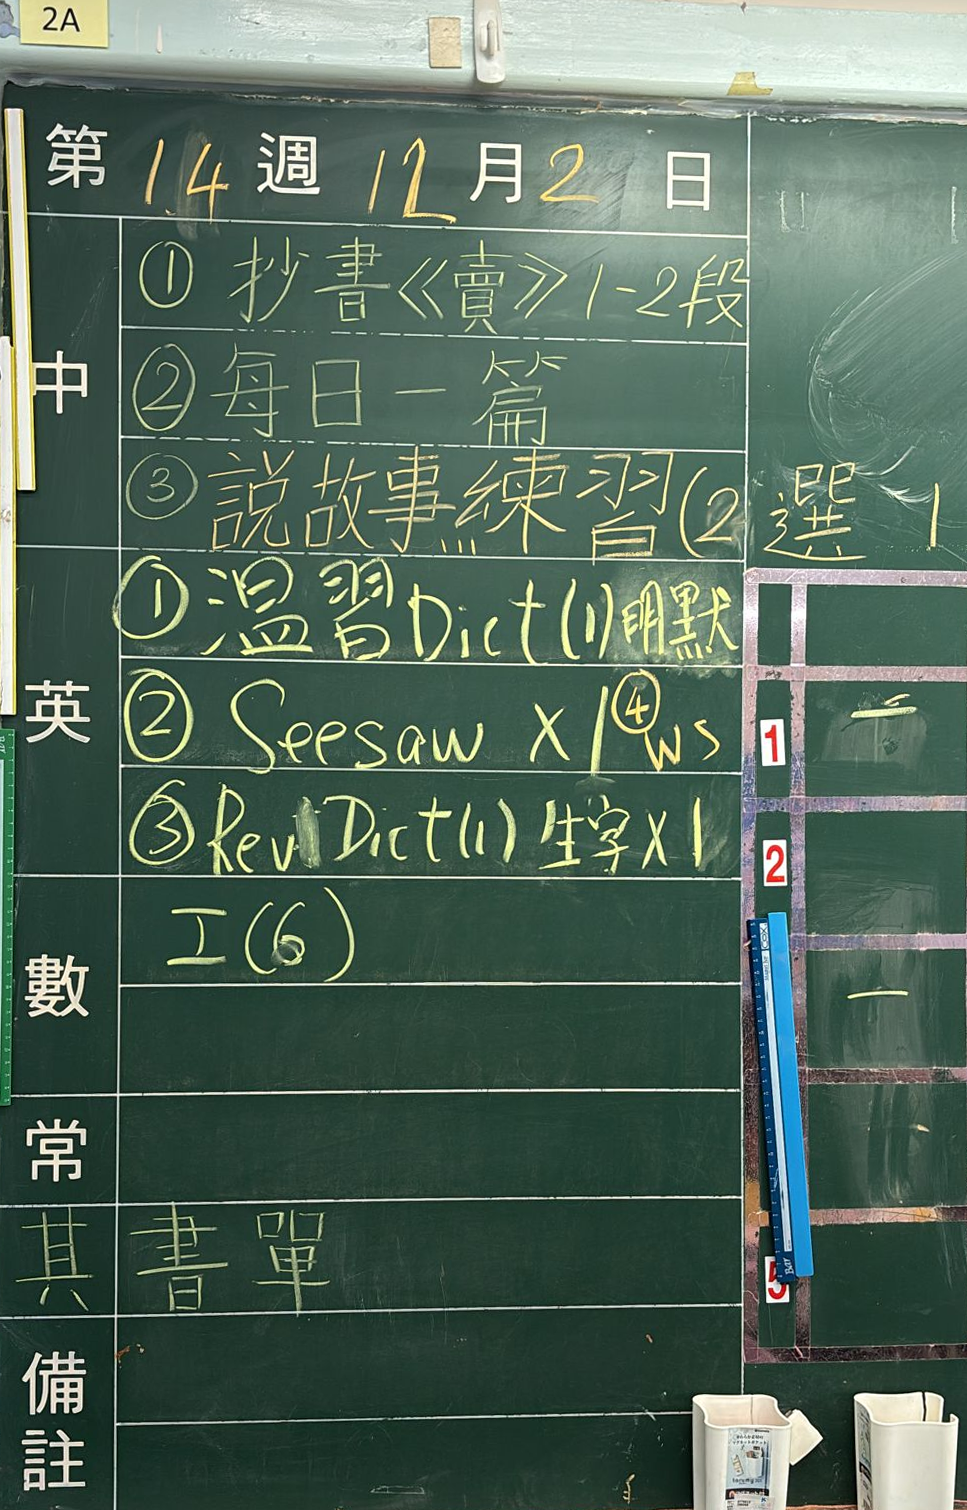 2A
第 14 週 12 月 2 日
中
① 抄書《賣》1-2段
② 每日一篇
③ 説故事練習(2 選 1
英
① 溫習Dict(1)明默
② Seesaw X1 ④ WS
③ Rev Dict(1) 生字X1
數
工(6)
常
其 書單
備註
1
2
5